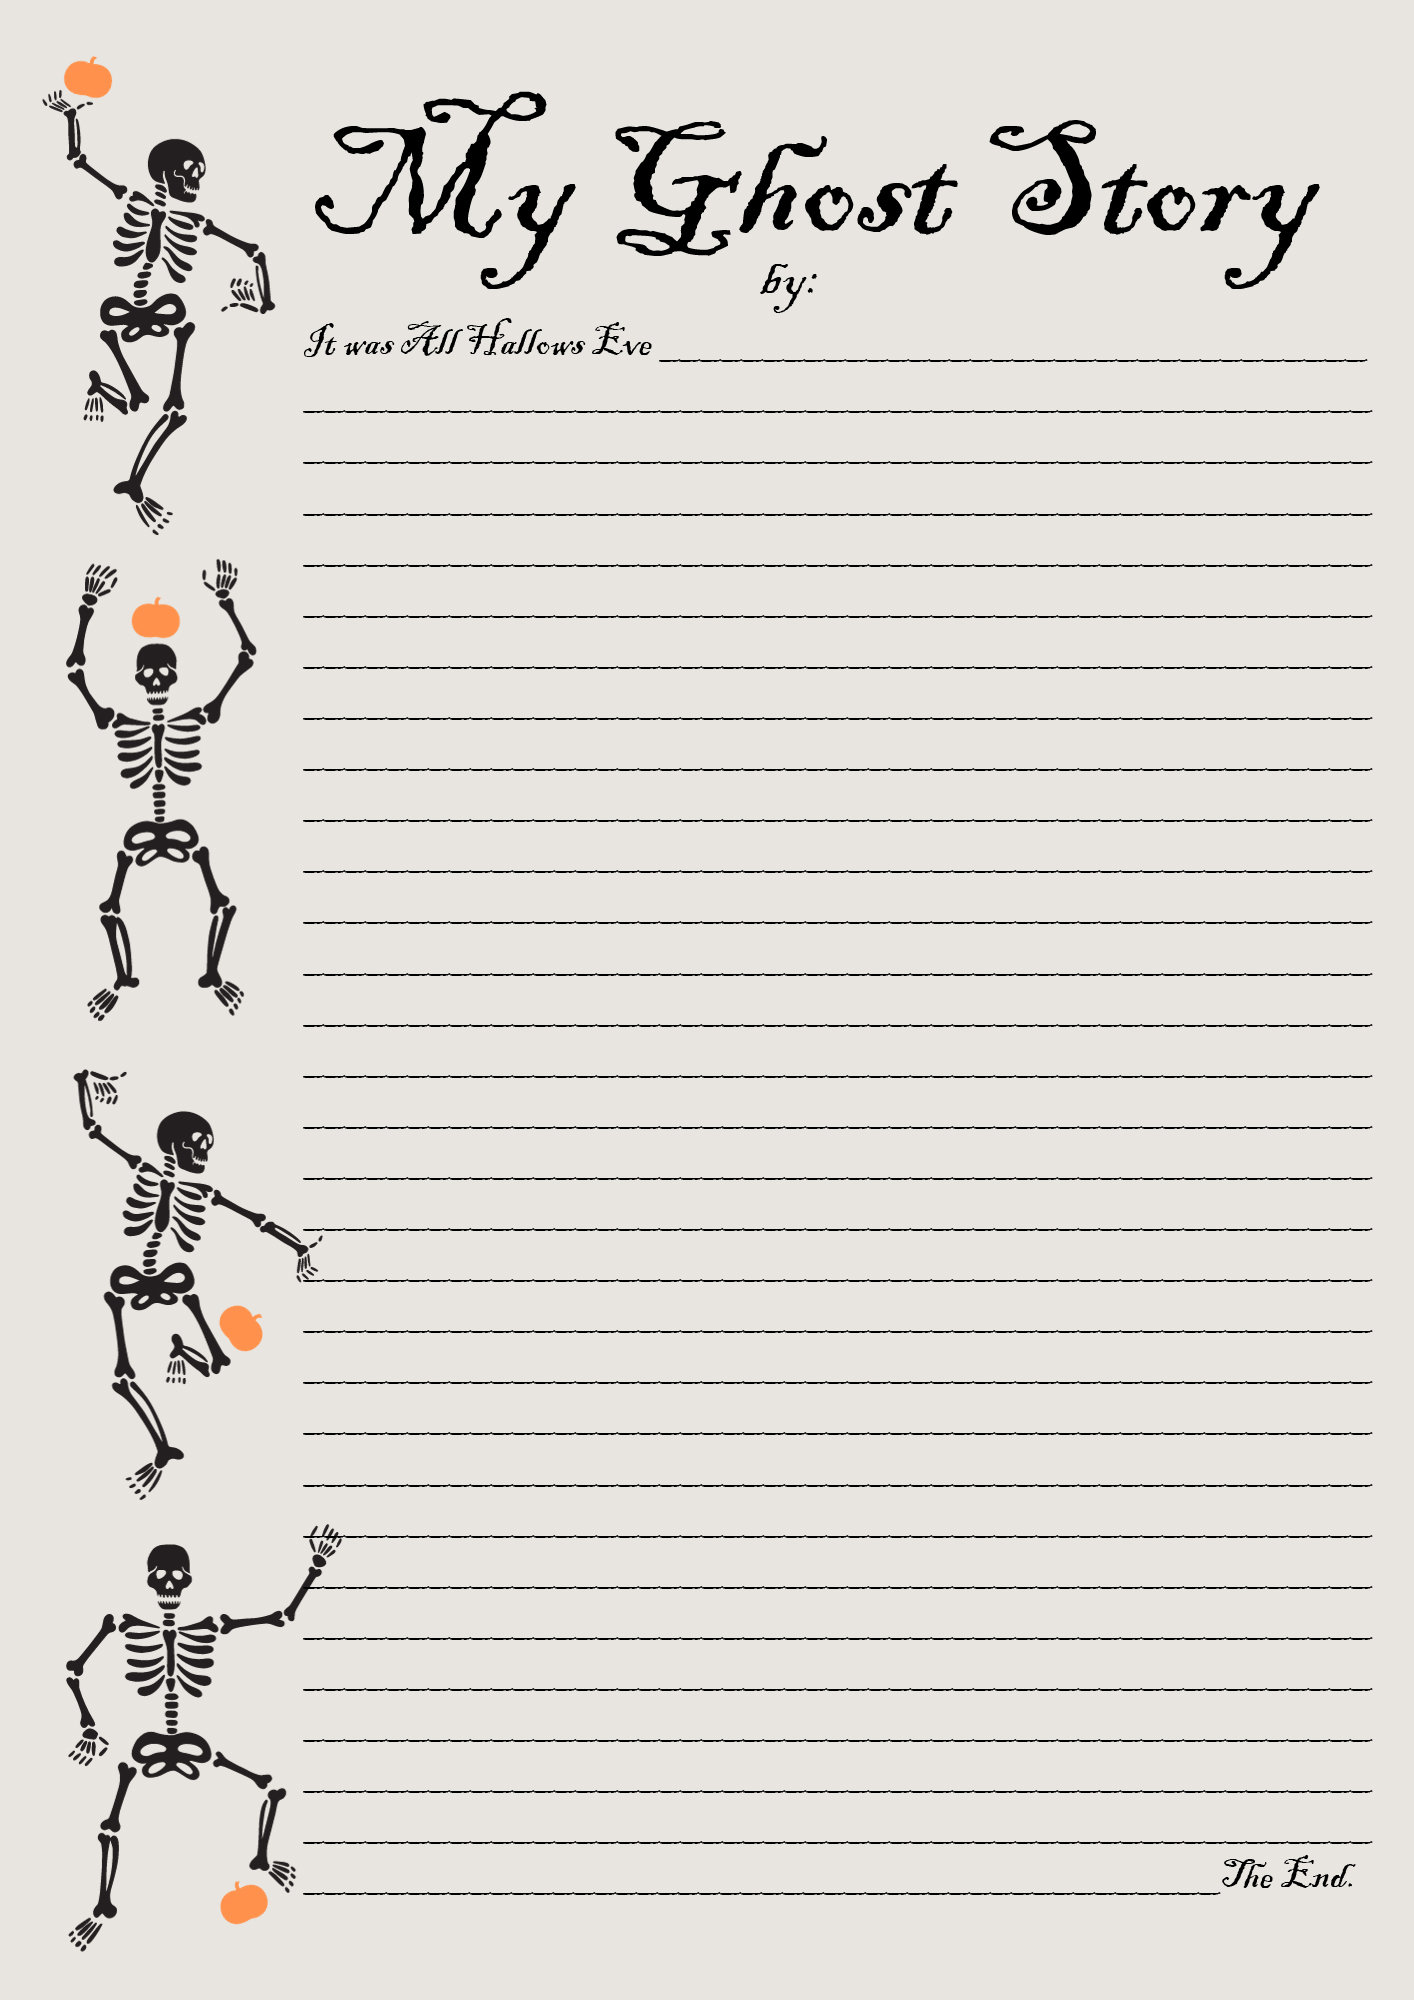 My Ghost Story
by:
It was All Hallows Eve
The End.